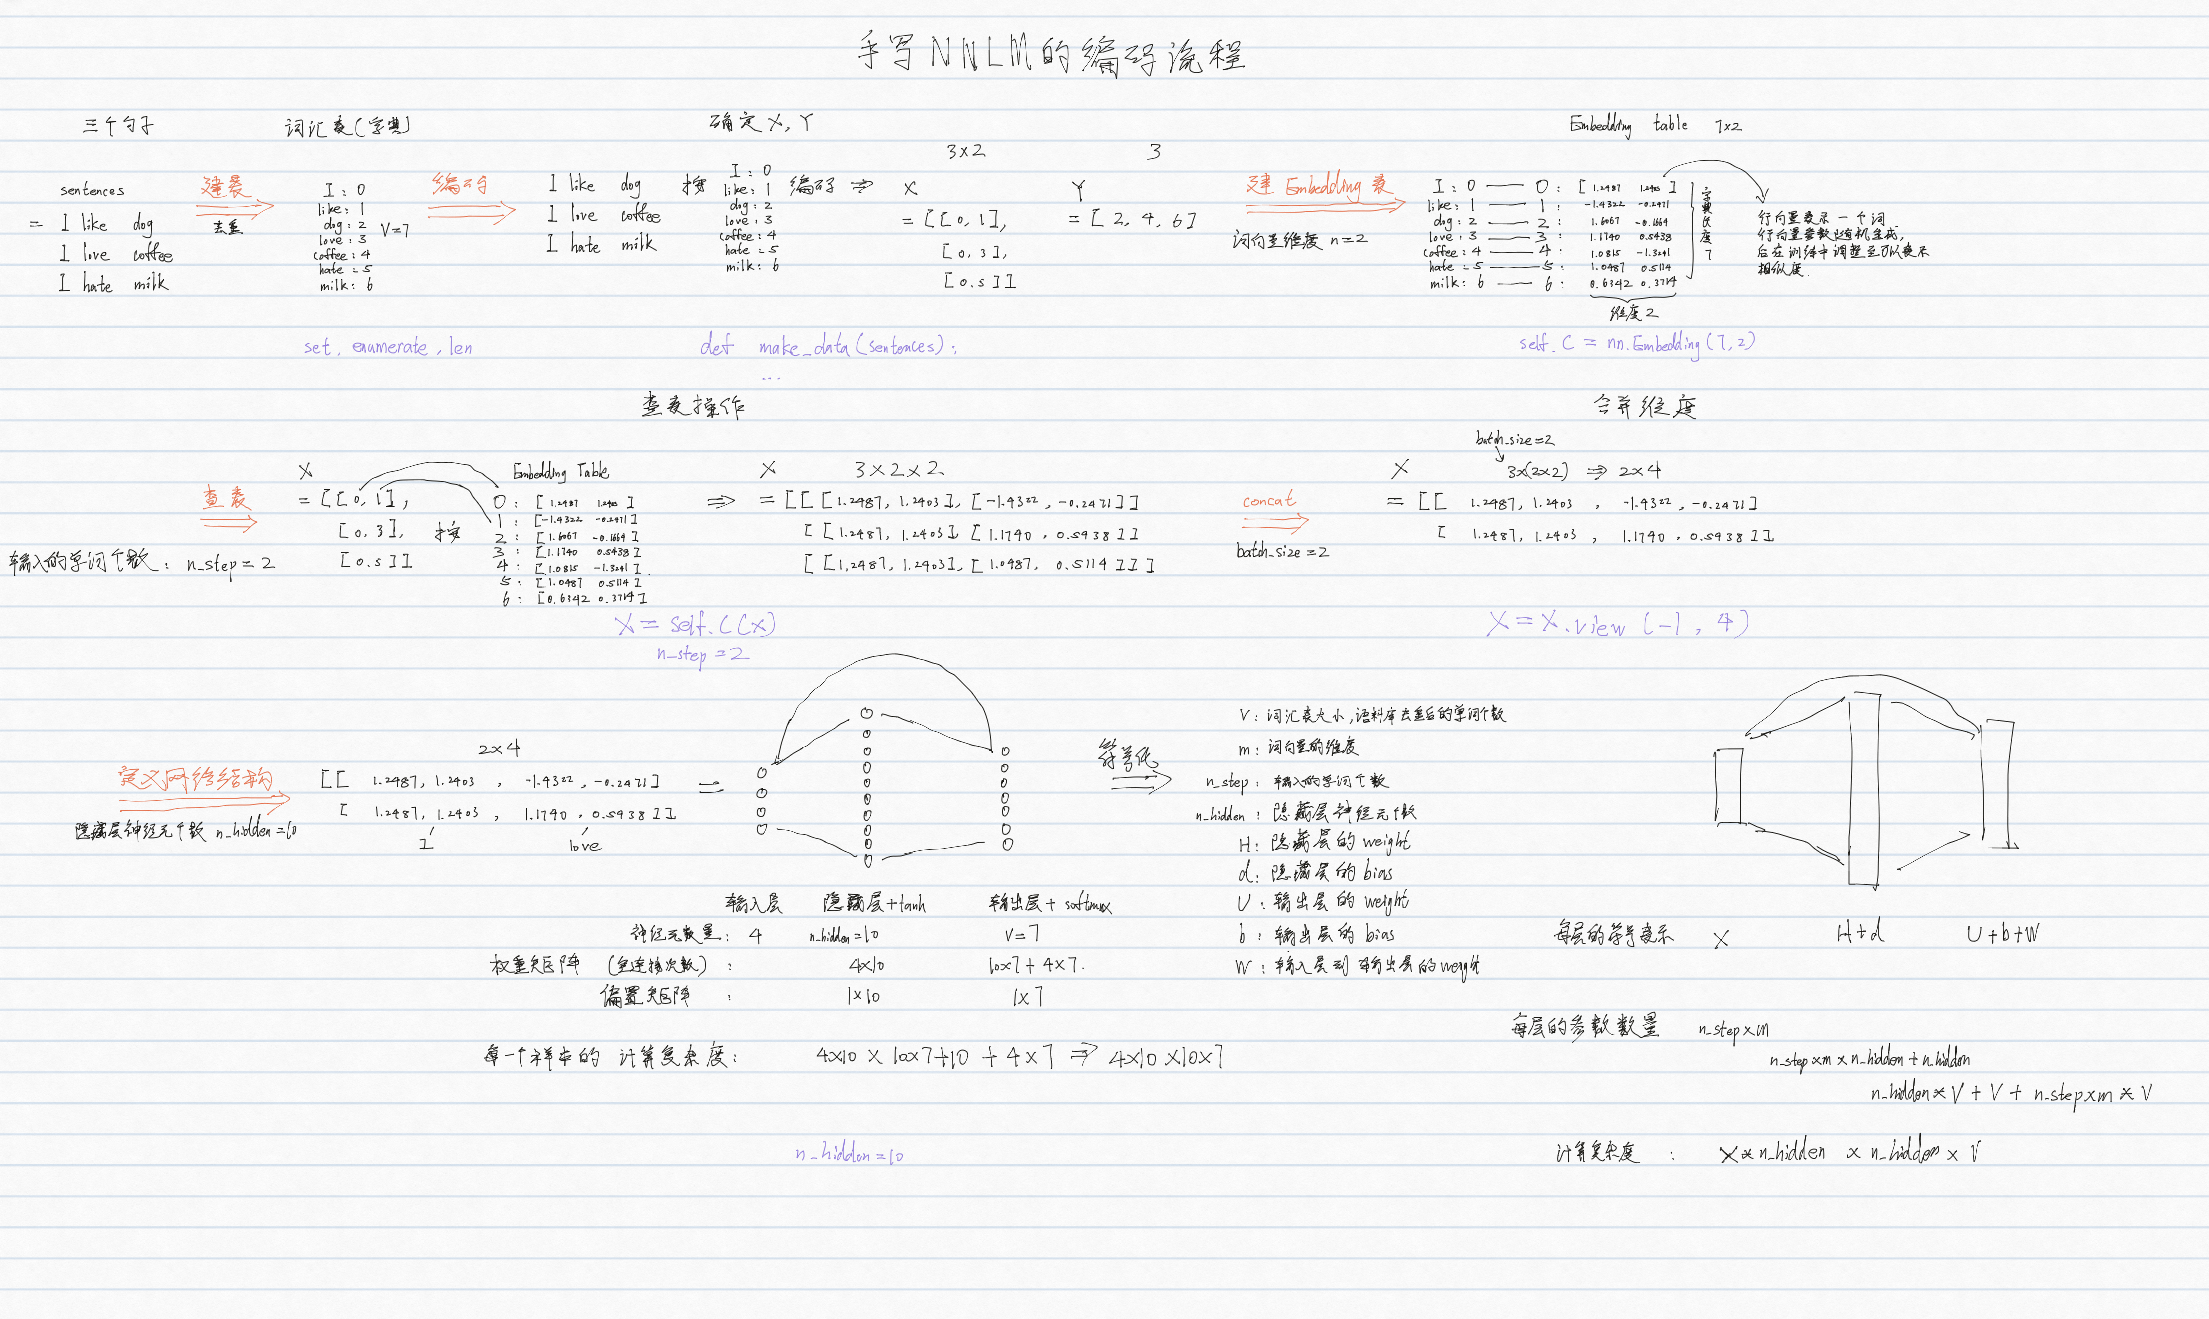 手写NNLM的编码流程
三个句子
sentences
= I like dog
I love coffee
I hate milk
建表
去重
词汇表(字典)
I : 0
like : 1
dog : 2
love : 3
coffee : 4
hate : 5
milk : 6
V=7
set, enumerate, len
编码
确定X, Y
I like dog
I love coffee
I hate milk
按
I : 0
like : 1
dog : 2
love : 3
coffee : 4
hate : 5
milk : 6
编码 ⇒
3×2
X
= [[0, 1],
[0, 3],
[0.5]]
3
Y
= [2, 4, 6]
def make_data(sentences):
...
建 Embedding 表
词向量维度 n=2
Embedding table 7×2
I : 0 — 0 : [1.2487 1.2403]
like : 1 — 1 : -1.4322 -0.2471
dog : 2 — 2 : 1.6067 -0.1664
love : 3 — 3 : 1.1740 0.5938
coffee : 4 — 4 : 1.0815 -1.3241
hate : 5 — 5 : 1.0487 0.5114
milk : 6 — 6 : 0.6342 0.3714
字典长度7
维度2
行向量表示一个词
行向量参数随机生成,
后在训练中调整至可以表示
相似度.
self.C = nn.Embedding(7,2)
查表操作
查表
输入的单词个数: n_step = 2
X
= [[0, 1],
[0, 3],
[0.5]]
按
Embedding Table
0 : [1.2487 1.2403]
1 : [-1.4322 -0.2471]
2 : [1.6067 -0.1664]
3 : [1.1740 0.5938]
4 : [1.0815 -1.3241]
5 : [1.0487 0.5114]
6 : [0.6342 0.3714]
⇒
X 3×2×2
= [[[1.2487, 1.2403], [-1.4322, -0.2471]]
[[1.2487, 1.2403] [1.1740, 0.5938]]
[[1.2487, 1.2403], [1.0487, 0.5114]]]
X = self.C(X)
n_step = 2
合并维度
concat
batch_size = 2
batch_size=2
X 3×(2×2) ⇒ 2×4
= [[ 1.2487, 1.2403 , -1.4322, -0.2471]
[ 1.2487, 1.2403 , 1.1740, 0.5938]]
X = X.view(-1, 4)
定义网络结构
隐藏层神经元个数 n_hidden=10
2×4
[[ 1.2487, 1.2403 , -1.4322, -0.2471]
[ 1.2487, 1.2403 , 1.1740, 0.5938]]
I love
=
输入层 隐藏层+tanh 输出层+softmax
神经元数量: 4 n_hidden=10 V=7
权重矩阵 (全连接次数) : 4×10 10×7+4×7.
偏置矩阵 : 1×10 1×7
每一个样本的 计算复杂度: 4×10 × 10×7+10 + 4×7 ⇒ 4×10×10×7
n_hidden=10
符号化
V : 词汇表大小, 语料库去重后的单词个数
m : 词向量的维度
n_step : 输入的单词个数
n_hidden : 隐藏层神经元个数
H : 隐藏层的 weight
d : 隐藏层的 bias
U : 输出层的 weight
b : 输出层的 bias
W : 输入层到输出层的weight
每层的符号表示 X H+d U+b+W
每层的参数数量 n_step×m
n_step×m×n_hidden+n_hidden
n_hidden×V+V+n_step×m×V
计算复杂度 : X×n_hidden × n_hidden × V